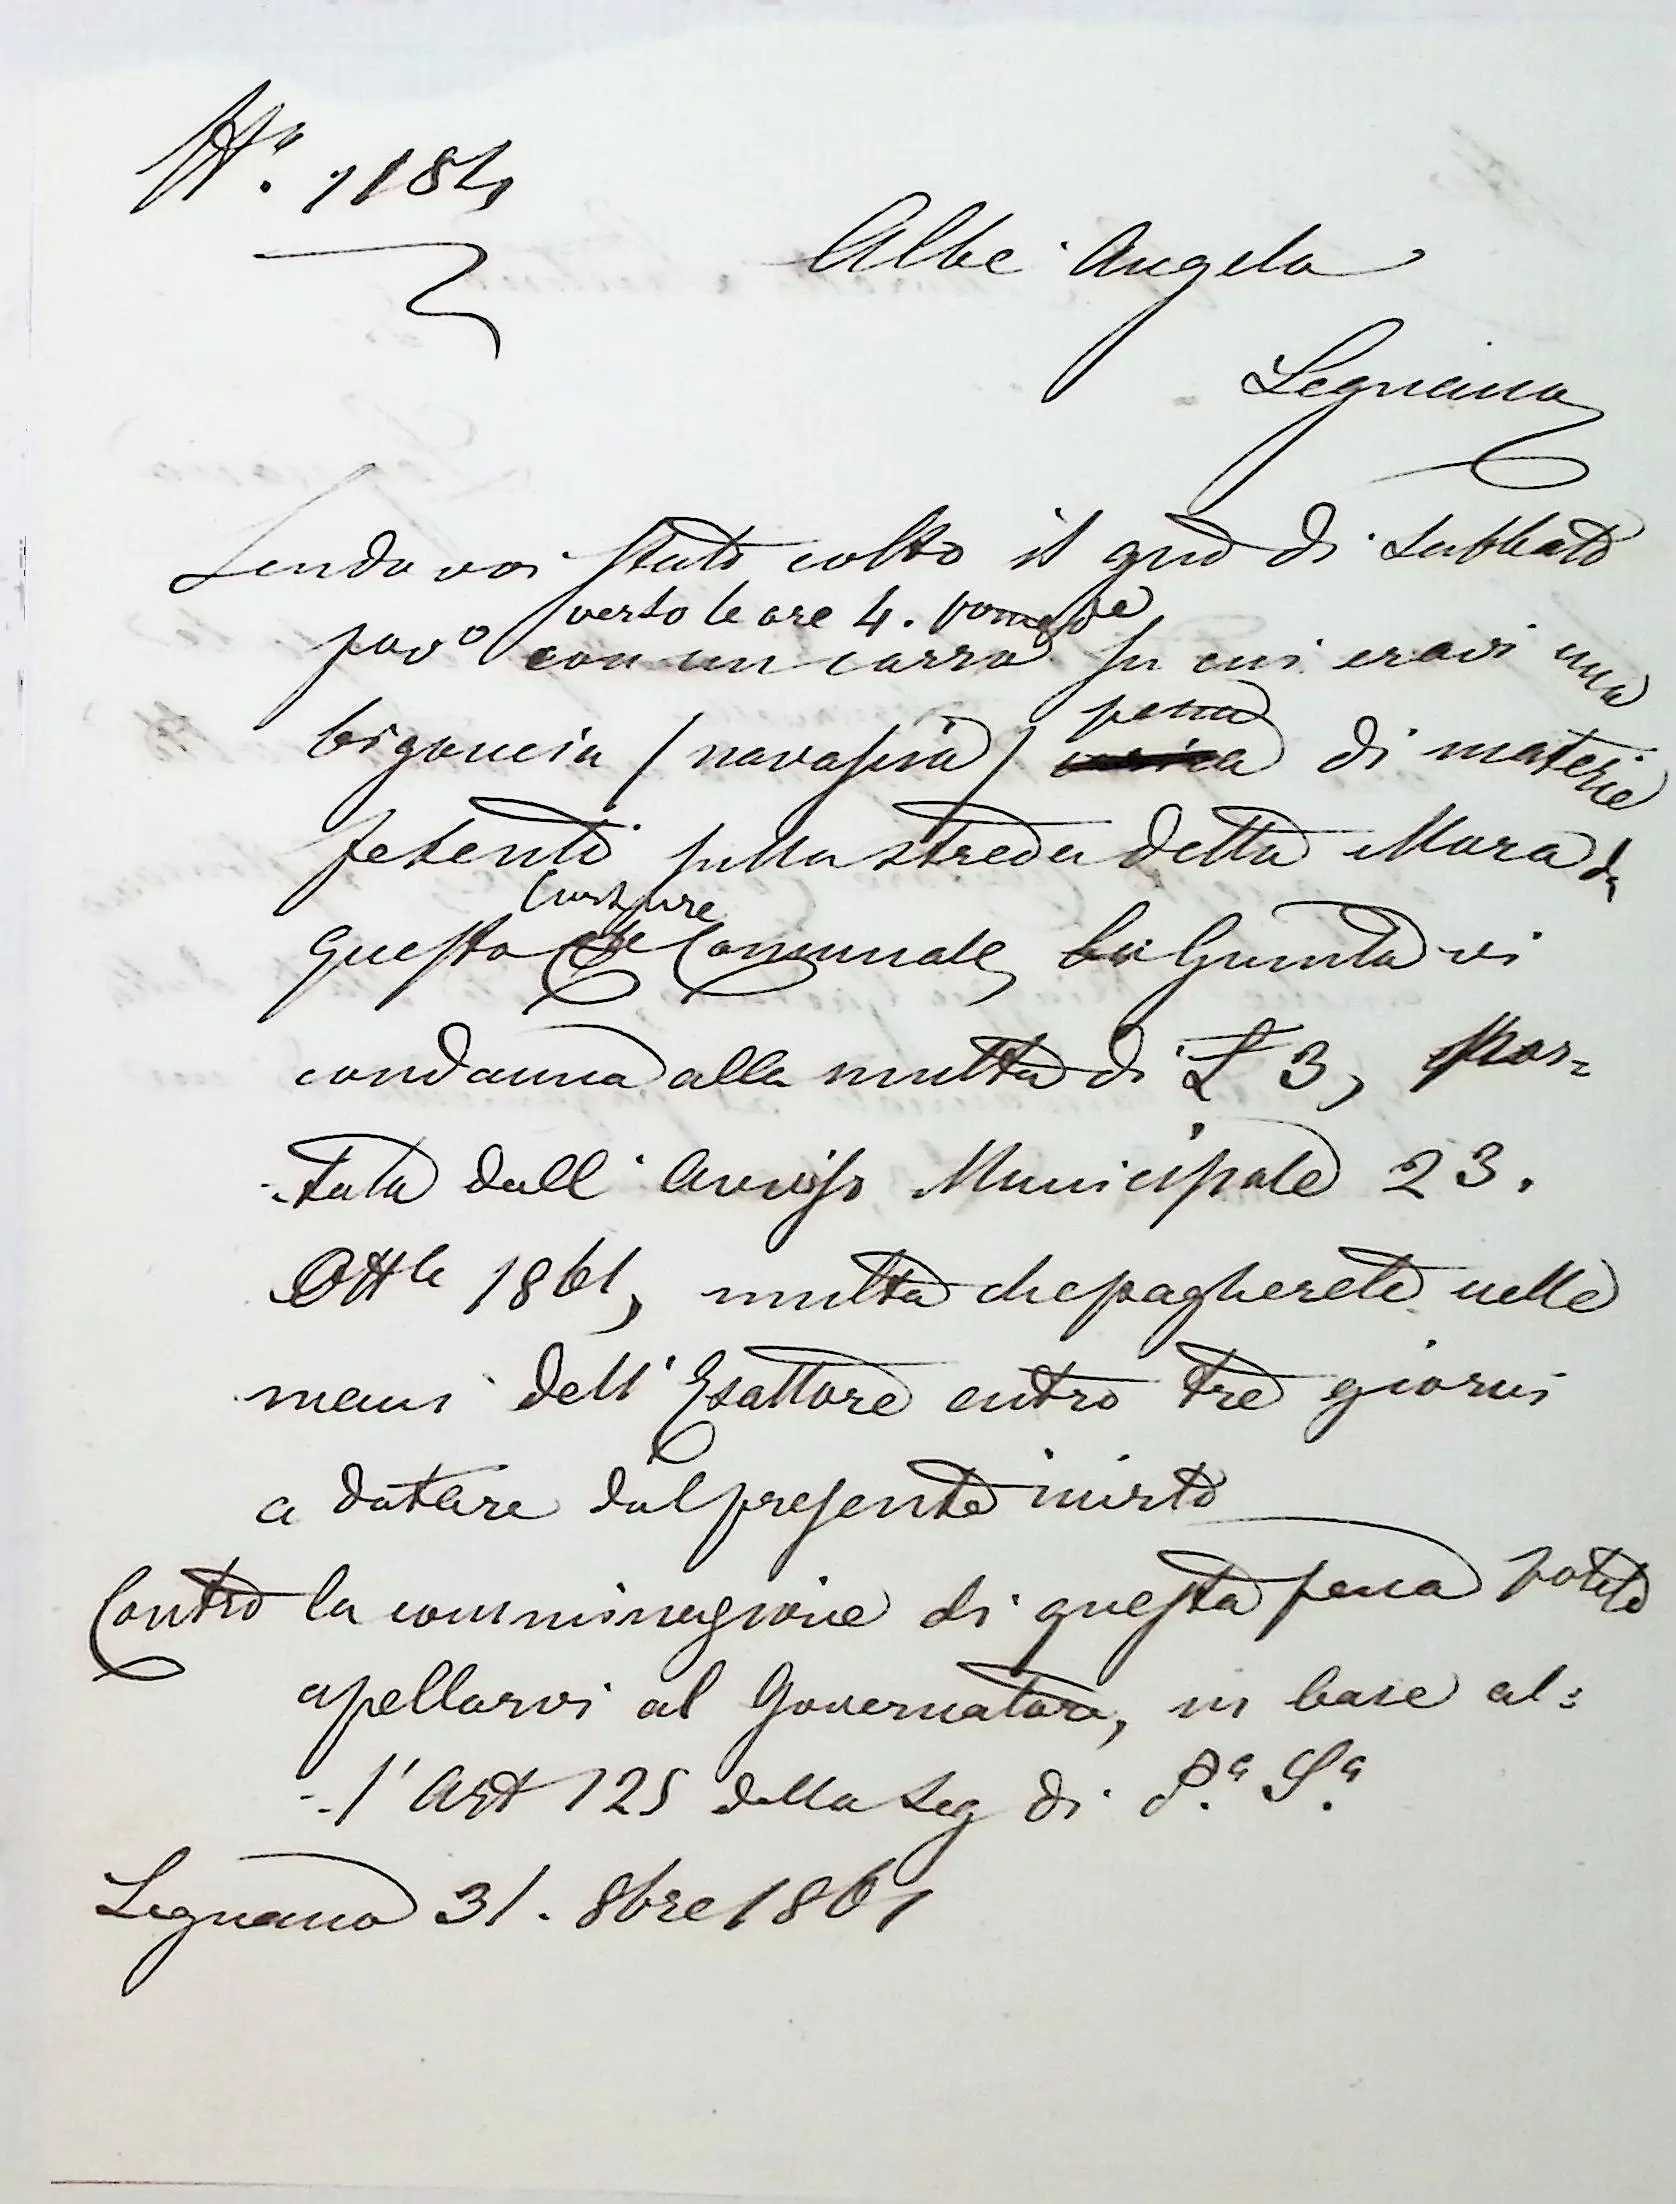 N.° 1184
Albe Angelo
Legnano
Sendo voi stato colto il gno di Sabbato
verso le ore 4. pomede
pov° con un carro su cui eravi una
piena
bigoncia / navascia / di materie
fetenti sulla strada detta Mora di
questo Comunale, la Giunta vi
condanna alla multa di £ 3, por-
-tata dall'avviso Municipale 23.
Ottbe 1861, multa che pagherete nelle
mani dell'Esattore entro tre giorni
a datare dal presente
Contro la comminazione di questa pena potete
apellarvi al Governatore, in base al=
-l'Art 125 della Leg di P.a S.a
Legnano 31. 8bre 1861